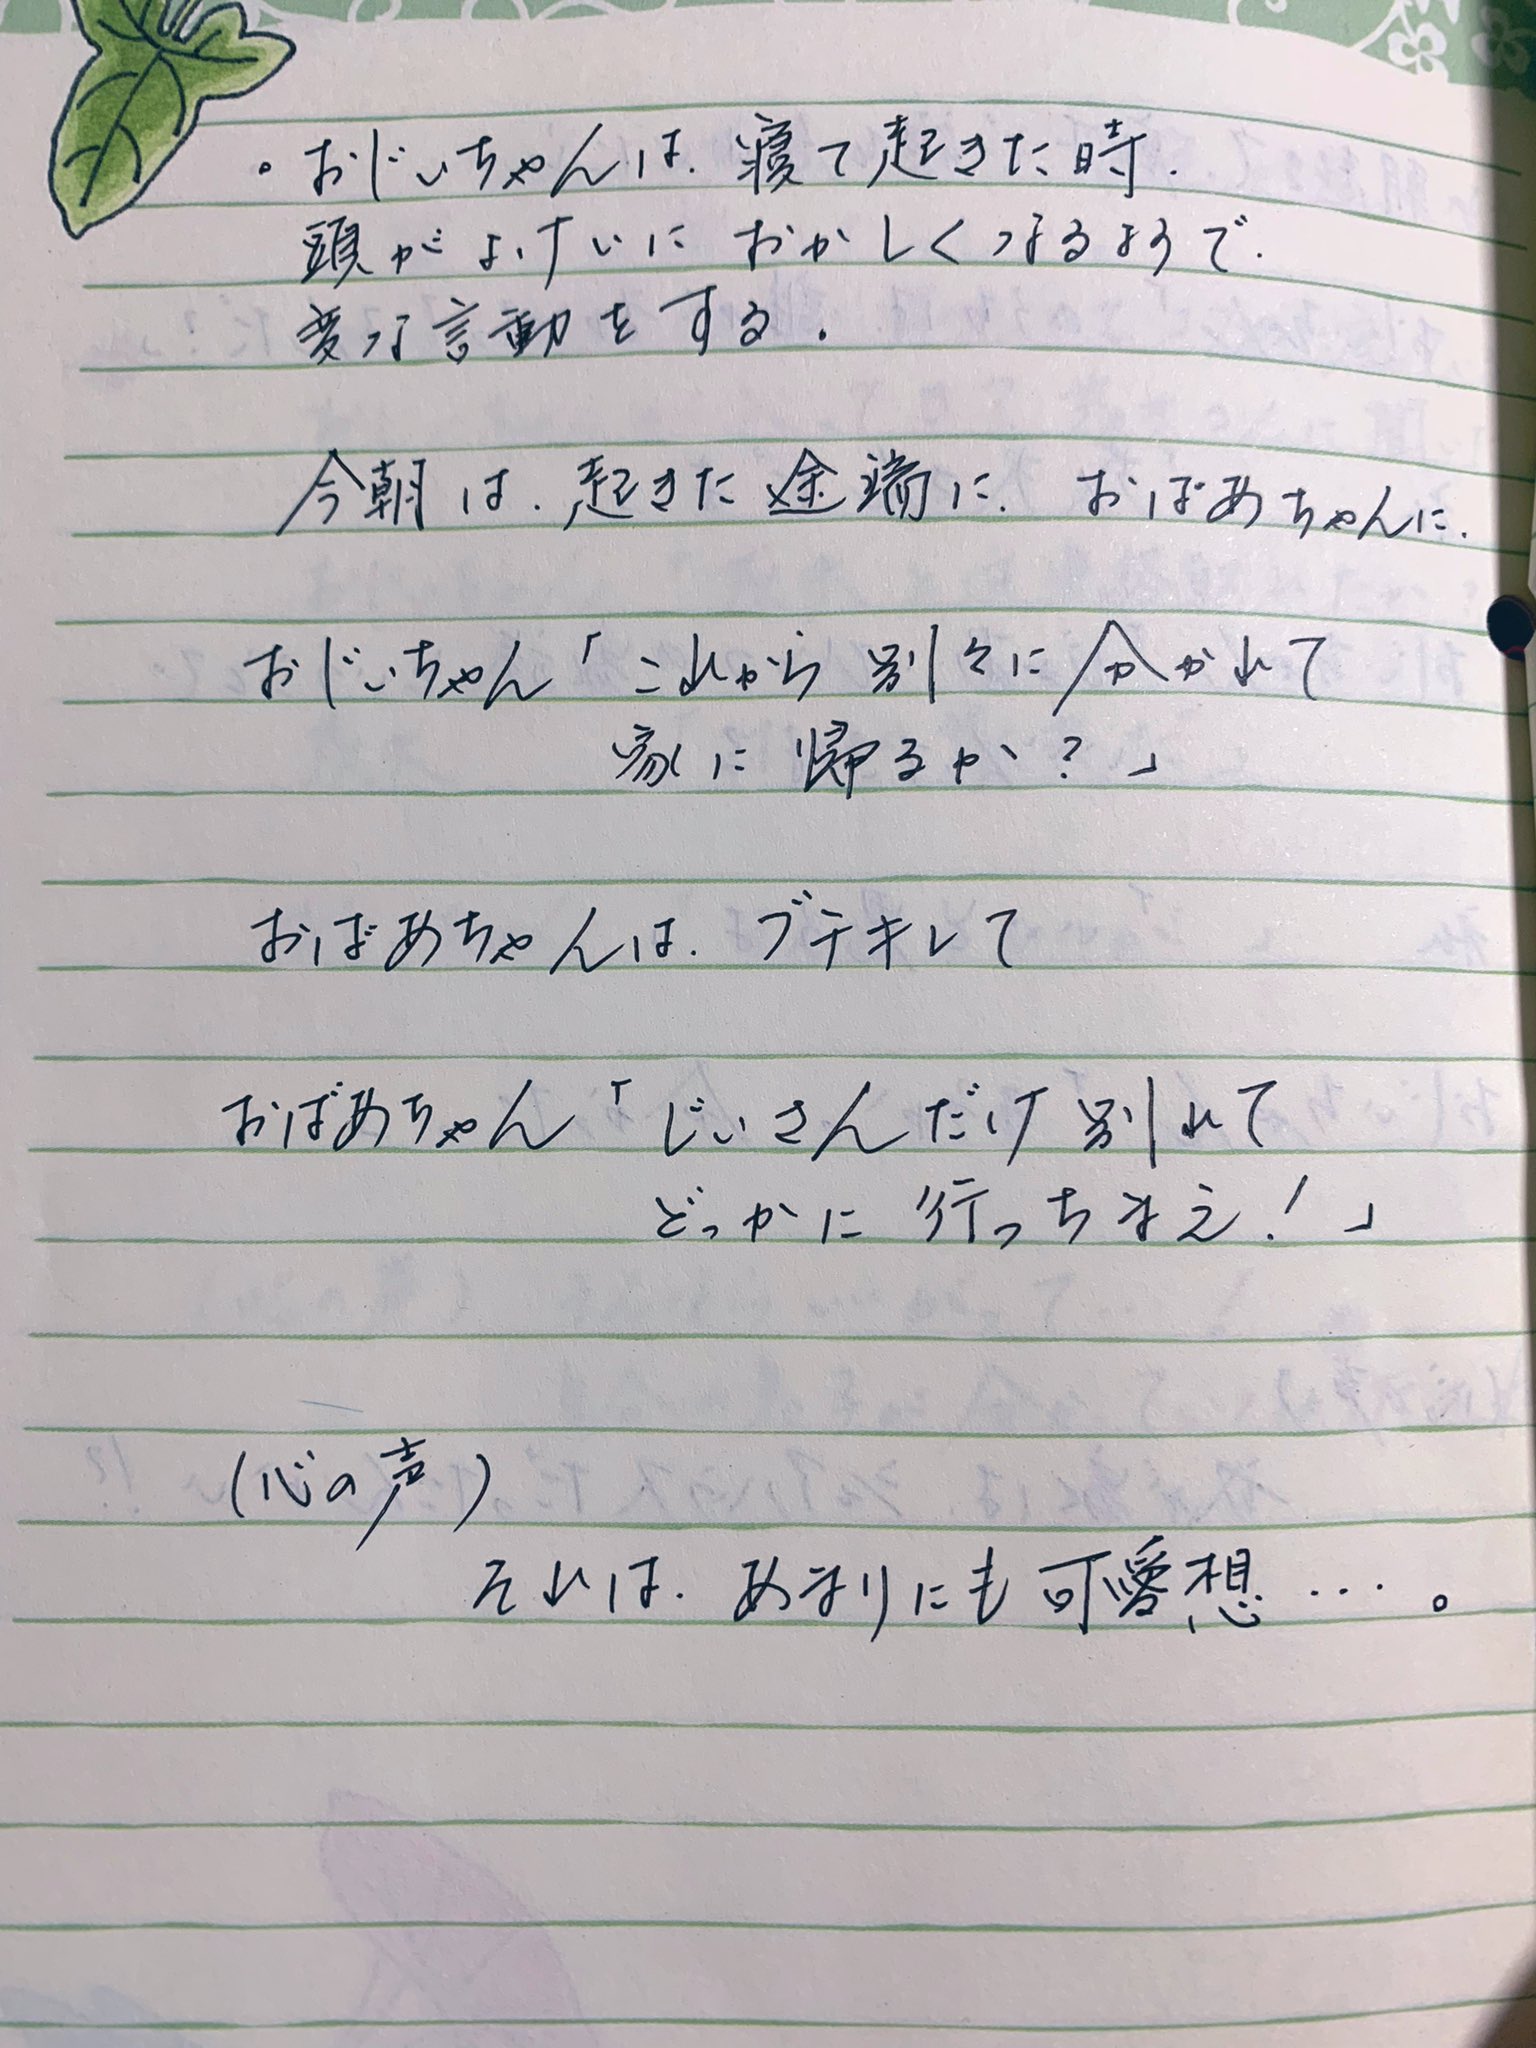 ・おじいちゃんは、寝て起きた時、
頭がよけいにおかしくなるようで、
変な言動をする。
今朝は、起きた途端に、おばあちゃんに、
おじいちゃん「これから別々に分かれて
家に帰るか？」
おばあちゃんは、ブチキレて
おばあちゃん「じいさんだけ別れて
どっかに行っちまえ！」
(心の声)
それは、あまりにも可愛想…。